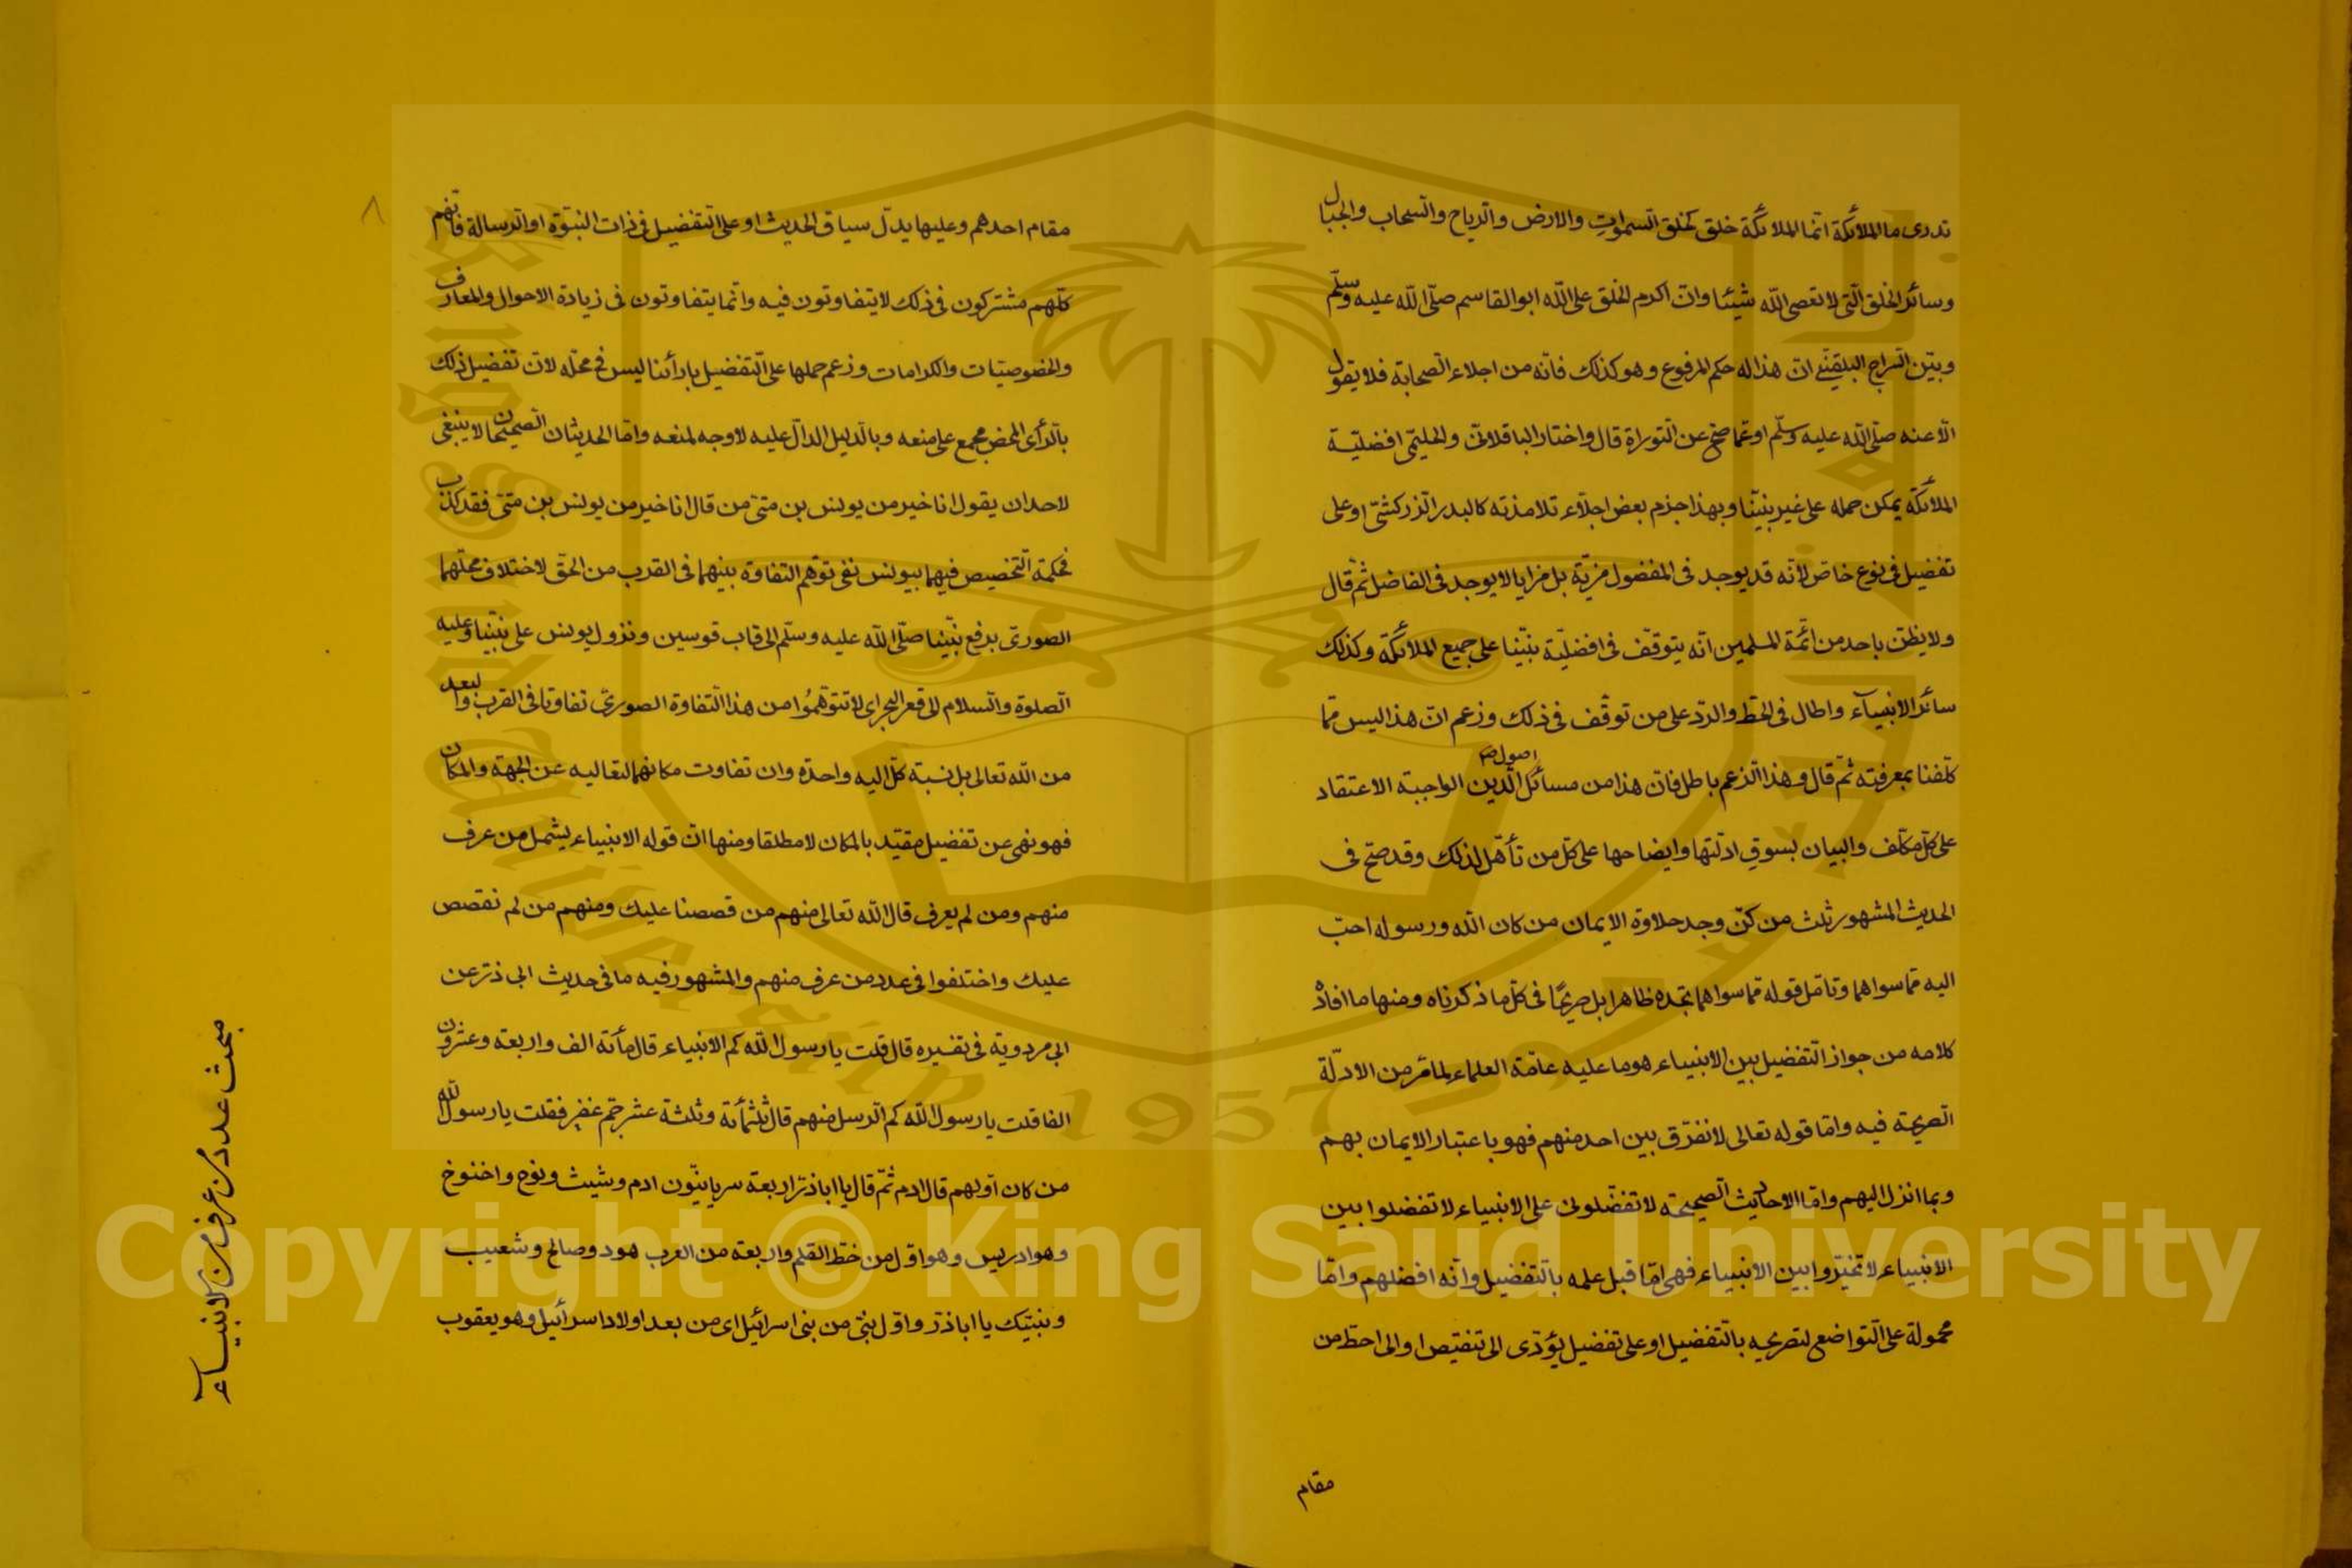 تدرى ما الملائكة انما الملائكة خلق كخلق السموات والارض والرياح والسحاب والجبال
وسائر الخلق التى لا تعصى الله شيئا وان اكرم الخلق على الله ابو القاسم صلى الله عليه وسلم
وبين السراج البلقينى ان هذا له حكم المرفوع وهو كذلك فانه من اجلاء الصحابة فلا يقول
الا عنه صلى الله عليه وسلم او عما صح عن التوراة قال واختار الباقلانى والحليمى افضلية
الملائكة يمكن حمله على غير نبينا وبهذا جزم بعض اجلاء تلامذته كالبدر الزركشى او على
تفضيل فى نوع خاص لانه قد يوجد فى المفضول مزية بل مزايا لا يوجد فى الفاضل ثم قال
ولا يظن باحد من ائمة المسلمين انه يتوقف فى افضلية نبينا على جميع الملائكة وكذلك
سائر الانبياء واطال فى الحط والرد على من توقف فى ذلك وزعم ان هذا ليس مما
كلفنا بمعرفته ثم قال وهذا الزعم باطل فان هذا من مسائل اصول الدين الواجبة الاعتقاد
على كل مكلف والبيان بسوق ادلتها وايضاحها على كل من تأهل لذلك وقد صح فى
الحديث المشهور ثلث من كن وجد حلاوة الايمان من كان الله ورسوله احب
اليه مما سواهما وتامل قوله مما سواهما تجده ظاهرا بل صريحا فى كل ما ذكرناه ومنها ما افاده
كلامه من جواز التفضيل بين الانبياء هو ما عليه عامة العلماء لما مر من الادلة
الصريحة فيه واما قوله تعالى لا نفرق بين احد منهم فهو باعتبار الايمان بهم
وبما انزل اليهم واما الاحاديث الصحيحة لا تفضلونى على الانبياء لا تفضلوا بين
الانبياء لا تخيروا بين الانبياء فهى اما قبل علمه بالتفضيل وانه افضلهم واما
محمولة على التواضع لتصريحه بالتفضيل او على تفضيل يؤدى الى تنقيص او الى احط من
مقام
٨
مقام احدهم وعليها يدل سياق الحديث او على التفضيل فى ذات النبوة او الرسالة فانهم
كلهم مشتركون فى ذلك لا يتفاوتون فيه وانما يتفاوتون فى زيادة الاحوال والمعارف
والخصوصيات والكرامات وزعم حملها على التفضيل بارائنا ليس فى محله لان تفضيل ذلك
بالرأى المحض مجمع على منعه وبالدليل الدال عليه لا وجه لمنعه واما الحديثان الصحيحان لا ينبغى
لاحد ان يقول انا خير من يونس بن متى من قال انا خير من يونس بن متى فقد كذب
فحكمة التخصيص فيهما بيونس نفى توهم التفاوة بينهما فى القرب من الحق لاختلاف محلهما
الصورى برفع نبينا صلى الله عليه وسلم الى قاب قوسين ونزول يونس على نبينا وعليه
الصلوة والسلام الى قعر البحر اى لا تتوهموا من هذا التفاوة الصورى تفاوتا فى القرب والبعد
من الله تعالى بل نسبة كل اليه واحدة وان تفاوت مكانهما لتعاليه عن الجهة والمكان
فهو نهى عن تفضيل مقيد بالمكان لا مطلقا ومنها ان قوله الانبياء يشمل من عرف
منهم ومن لم يعرف قال الله تعالى منهم من قصصنا عليك ومنهم من لم نقصص
عليك واختلفوا فى عدد من عرف منهم والمشهور فيه ما فى حديث ابى ذر عن
ابى مردوية فى تفسيره قال قلت يا رسول الله كم الانبياء قال مأئة الف واربعة وعشرون
الفا قلت يا رسول الله كم الرسل منهم قال ثلثمائة وثلثة عشر جم غفير فقلت يا رسول الله
من كان اولهم قال ادم ثم قال يا اباذر اربعة سريانيون ادم وشيث ونوح واخنوخ
وهو ادريس وهو اول من خط القلم واربعة من العرب هود وصالح وشعيب
ونبيك يا اباذر واول نبى من بنى اسرائيل اى من بعد اولاد اسرائيل وهو يعقوب
مبحث عدد من عرف من الانبياء
Copyright © King Saud University
King Saud University
1957